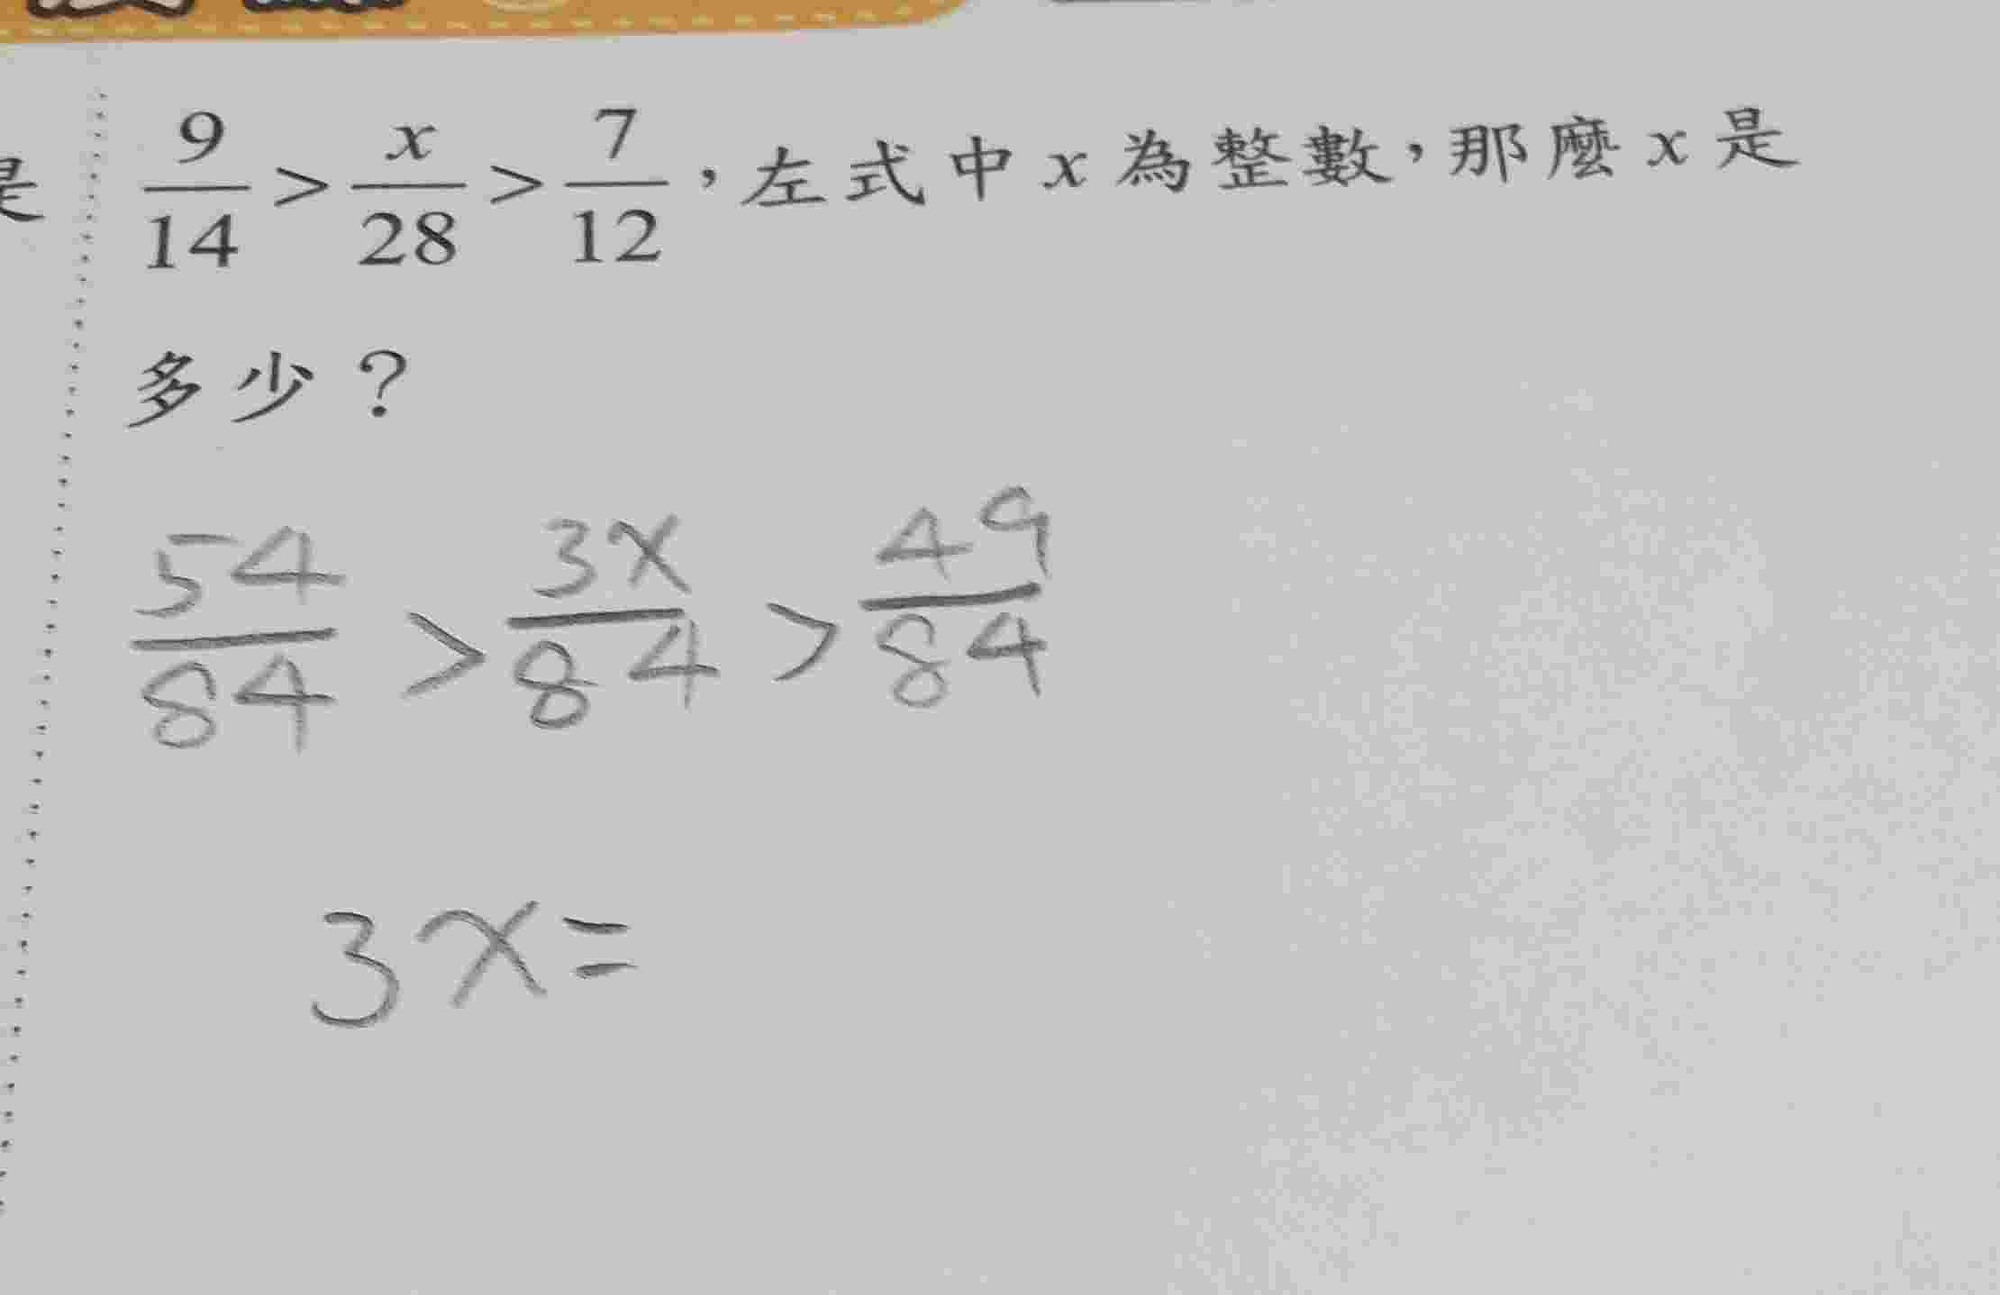 是
9/14 > x/28 > 7/12，左式中x為整數，那麼x是
多少？
54/84 > 3x/84 > 49/84
3x=